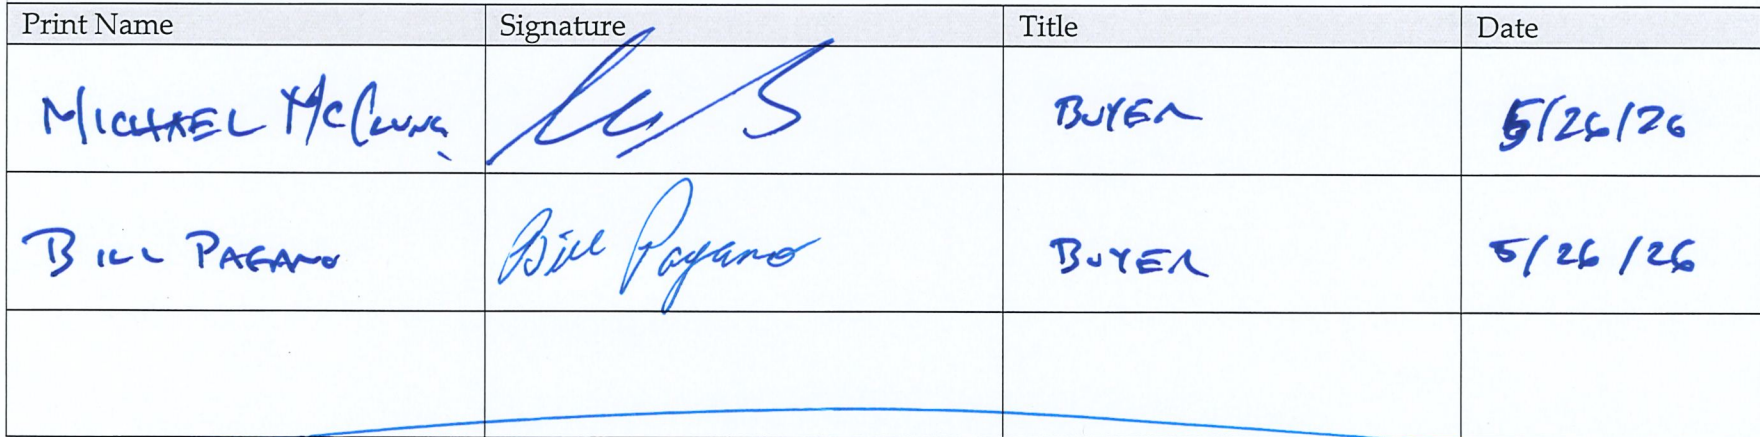 Print Name Signature Title Date
MICHAEL McCLUNG BUYER 5/26/26
BILL PAGANO Bill Pagano BUYER 5/26/26